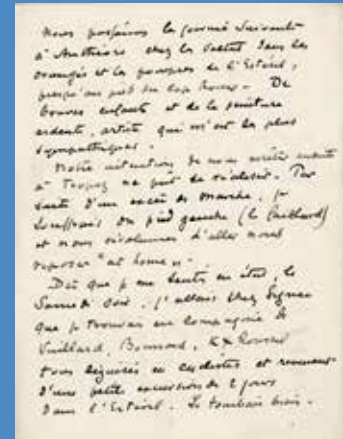 Nous passâmes la journée suivante
à Anthéore chez les Valtat dans les
orangés et les pourpres de l'Estérel,
presqu'au pied du cap Roux. De
bonnes enfants et de la peinture
ardente, artiste qui m'est les plus
sympathiques.
Notre intention de nous arrêter ensuite
à Tropez ne put se réaliser. Par
suite d'un excès de marche, je
souffrais du pied gauche (le gaillard)
et nous résolûmes d'aller nous
reposer "at home".
Dès que je me sentis en état, le
Samedi soir, j'allais chez Signac
que je trouvai en compagnie de
Vuillard, Bonnard, KX Roussel
tous déguisés en cyclistes et revenant
d'une petite excursion de 2 jours
dans l'Estérel. Je tombais bien.